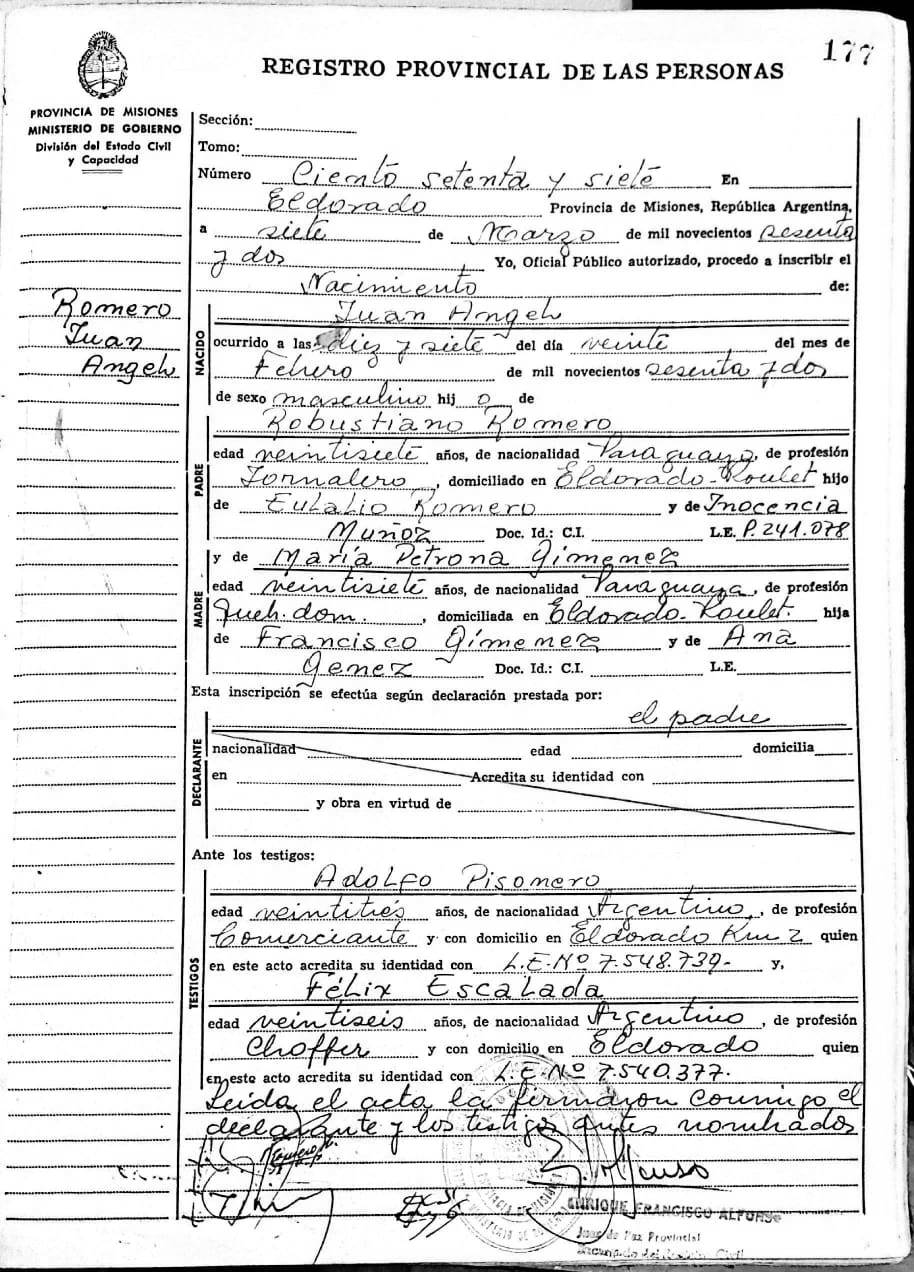 177
REGISTRO PROVINCIAL DE LAS PERSONAS
PROVINCIA DE MISIONES
MINISTERIO DE GOBIERNO
División del Estado Civil
y Capacidad
Sección:
Tomo:
Número Ciento setenta y siete En
Eldorado Provincia de Misiones, República Argentina,
a siete de Marzo de mil novecientos sesenta
y dos Yo, Oficial Público autorizado, procedo a inscribir el
Nacimiento de:
Romero
Juan
Angel
NACIDO
Juan Angel
ocurrido a las diez y siete del día veinte del mes de
Febrero de mil novecientos sesenta y dos
de sexo masculino hij o de
PADRE
Robustiano Romero
edad veintisiete años, de nacionalidad Paraguaya, de profesión
Jornalero, domiciliado en Eldorado-Roulet hijo
de Eulalio Romero y de Inocencia
Muñoz Doc. Id.: C.I. L.E. P.241.078
MADRE
y de María Petrona Gimenez
edad veintisiete años, de nacionalidad Paraguaya, de profesión
Queh. dom., domiciliada en Eldorado-Roulet. hija
de Francisco Gimenez y de Ana
Genez Doc. Id.: C.I. L.E.
Esta inscripción se efectúa según declaración prestada por:
DECLARANTE
el padre
nacionalidad edad domicilia
en Acredita su identidad con
y obra en virtud de
Ante los testigos:
TESTIGOS
Adolfo Pisomero
edad veintitrés años, de nacionalidad Argentino, de profesión
Comerciante y con domicilio en Eldorado Km 2 quien
en este acto acredita su identidad con L.E.Nº 7.548.739- y,
Félix Escalada
edad veintiseis años, de nacionalidad Argentino, de profesión
Choffer y con domicilio en Eldorado quien
en este acto acredita su identidad con L.E.Nº 7.540.377.
Leida el acta la firmaron conmigo el
declarante y los testigos antes nombrados
ENRIQUE FRANCISCO ALFONSO
Juez de Paz Provincial